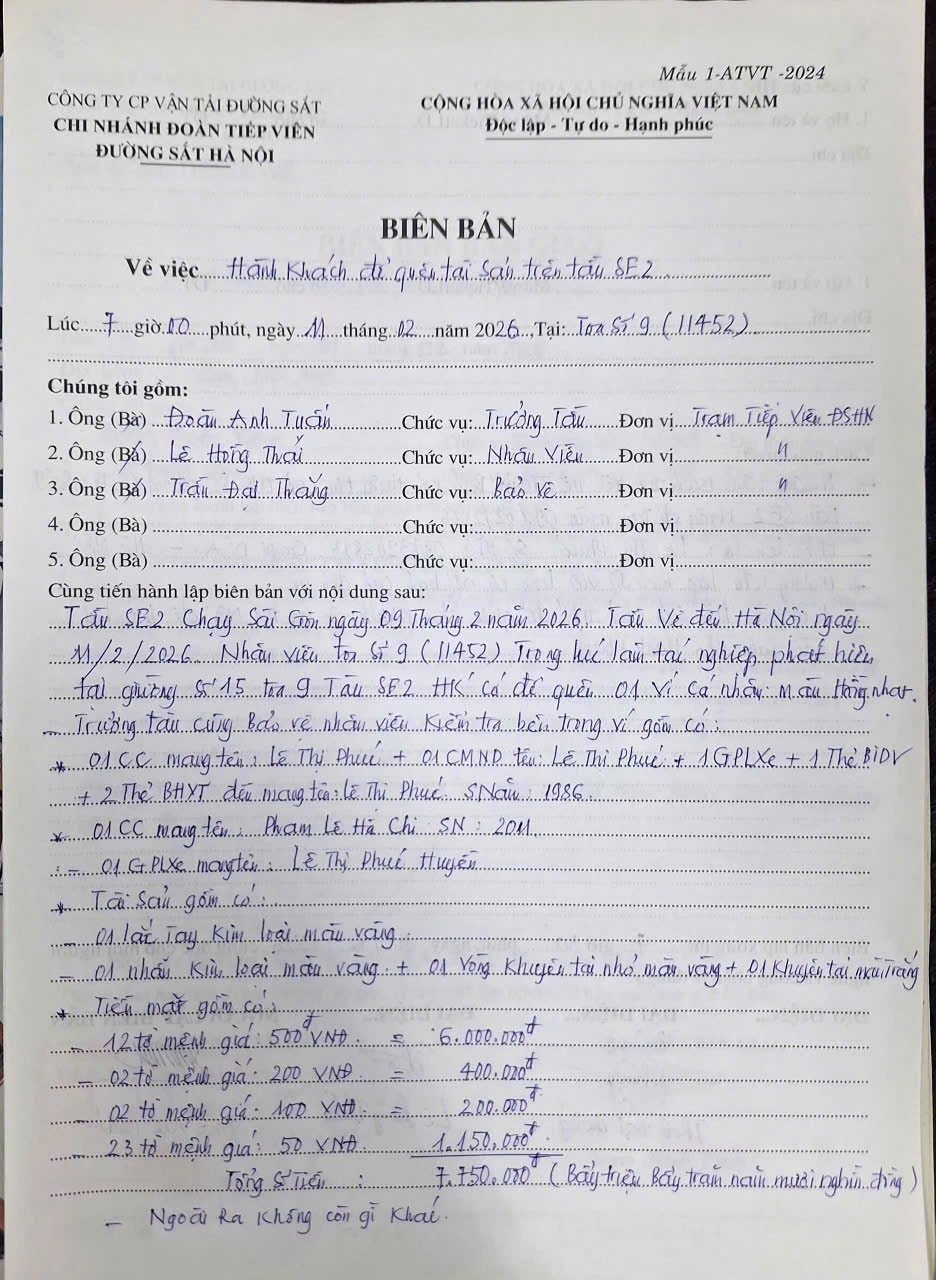 Mẫu 1-ATVT -2024
CÔNG TY CP VẬN TẢI ĐƯỜNG SẮT
CHI NHÁNH ĐOÀN TIẾP VIÊN
ĐƯỜNG SẮT HÀ NỘI
CỘNG HÒA XÃ HỘI CHỦ NGHĨA VIỆT NAM
Độc lập - Tự do - Hạnh phúc
BIÊN BẢN
Về việc Hành Khách để quên tài sản trên tàu SE2
Lúc 7 giờ 00 phút, ngày 11 tháng 02 năm 2026, Tại: Toa Số 9 (11452)
Chúng tôi gồm:
1. Ông (Bà) Đoàn Anh Tuấn Chức vụ: Trưởng Tàu Đơn vị Trạm Tiếp Viên ĐSHN
2. Ông (Bà) Lê Hồng Thái Chức vụ: Nhân Viên Đơn vị "
3. Ông (Bà) Trần Đại Thắng Chức vụ: Bảo Vệ Đơn vị "
4. Ông (Bà) Chức vụ: Đơn vị
5. Ông (Bà) Chức vụ: Đơn vị
Cùng tiến hành lập biên bản với nội dung sau:
Tàu SE2 Chạy Sài Gòn ngày 09 Tháng 2 năm 2026. Tàu Về đến Hà Nội ngày
11/2/2026. Nhân viên toa Số 9 (11452) Trong lúc làm tác nghiệp phát hiện
tại giường Số 15 toa 9 Tàu SE2 HK có để quên 01 Ví cá nhân: Màu Hồng nhạt.
- Trưởng tàu cùng Bảo vệ nhân viên Kiểm tra bên trong ví gồm có:
* 01 CC mang tên: Lê Thị Phúc + 01 CMND tên: Lê Thị Phúc + 1 GPLXe + 1 Thẻ BIDV
+ 2 Thẻ BHYT đều mang tên: Lê Thị Phúc. SNăm: 1986.
* 01 CC mang tên: Phạm Lê Hà Chi SN: 2011
: - 01 GPLXe mang tên: Lê Thị Phúc Huyền
* Tài Sản gồm có:
- 01 lắc Tay Kim loại màu vàng.
- 01 nhẫn Kim loại màu vàng. + 01 Vòng Khuyên tai nhỏ màu vàng + 01 Khuyên tai màu Trắng
* Tiền mặt gồm có:
- 12 tờ mệnh giá: 500đ VNĐ. = 6.000.000đ
- 02 tờ mệnh giá: 200 VNĐ = 400.000đ
- 02 tờ mệnh giá: 100 VNĐ. = 200.000đ
- 23 tờ mệnh giá: 50 VNĐ. 1.150.000đ
Tổng Số Tiền : 7.750.000đ (Bẩy triệu Bẩy trăm năm mươi nghìn đồng)
- Ngoài Ra Không còn gì Khác.